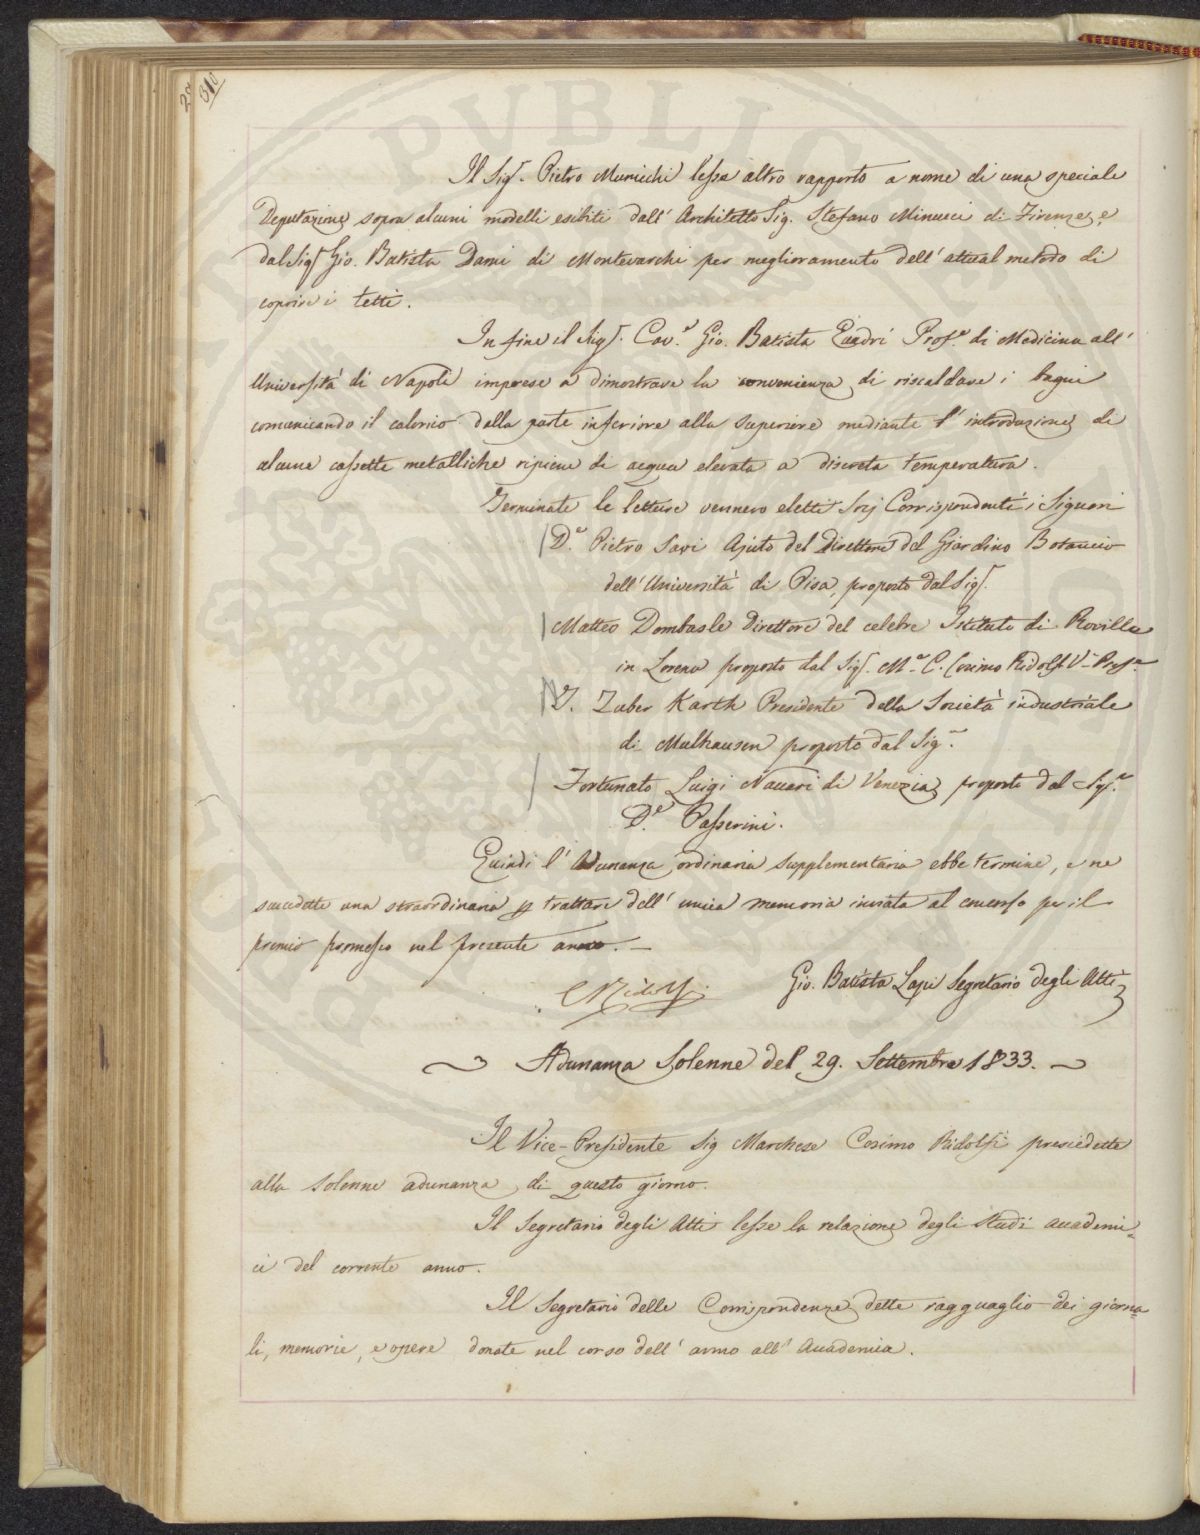 310
Il Sigr. Pietro Municchi lesse altro rapporto a nome di una speciale
Deputazione sopra alcuni modelli esibiti dall' Architetto Sig. Stefano Minucci di Firenze, e
dal Sigr Gio. Batista Dami di Montevarchi per miglioramento dell' attual metodo di
coprire i tetti.
In fine il Sigr. Cav.e Gio. Batista Quadri Prof.e di Medicina all'
Università di Napoli imprese a dimostrare la convenienza di riscaldare i bagni
comunicando il calorico dalla parte inferiore alla superiore mediante l' introduzione di
alcune cassette metalliche ripiene di acqua elevata a discreta temperatura.
Terminate le letture vennero eletti Socj Corrispondenti i Signori
D.e Pietro Savi Ajuto del Direttore del Giardino Botanico
dell' Università di Pisa, proposto dal Sigr.
Matteo Dombasle Direttore del celebre Istituto di Roville
in Lorena proposto dal Sigr. M.e C. Cosimo Ridolfi V. Pres.e
J. Zuber Karth Presidente della Società industriale
di Mulhausen proposto dal Sig.
Fortunato Luigi Naccari di Venezia, proposto dal Sigr.
D.e Passerini.
Quindi l' Adunanza ordinaria supplementaria ebbe termine, e ne
succedette una straordinaria p trattare dell' unica memoria inviata al concorso per il
premio promesso nel presente anno. —
C Ridolfi
Gio. Batista Lapi Segretario degli Atti
~ Adunanza Solenne del 29. Settembre 1833. ~
Il Vice-Presidente Sig Marchese Cosimo Ridolfi presiedette
alla solenne adunanza di questo giorno.
Il Segretario degli Atti lesse la relazione degli studi accademi=
ci del corrente anno.
Il Segretario delle Corrispondenze dette ragguaglio dei giorna=
li, memorie, e opere donate nel corso dell' anno all' Accademia.
PUBLIC